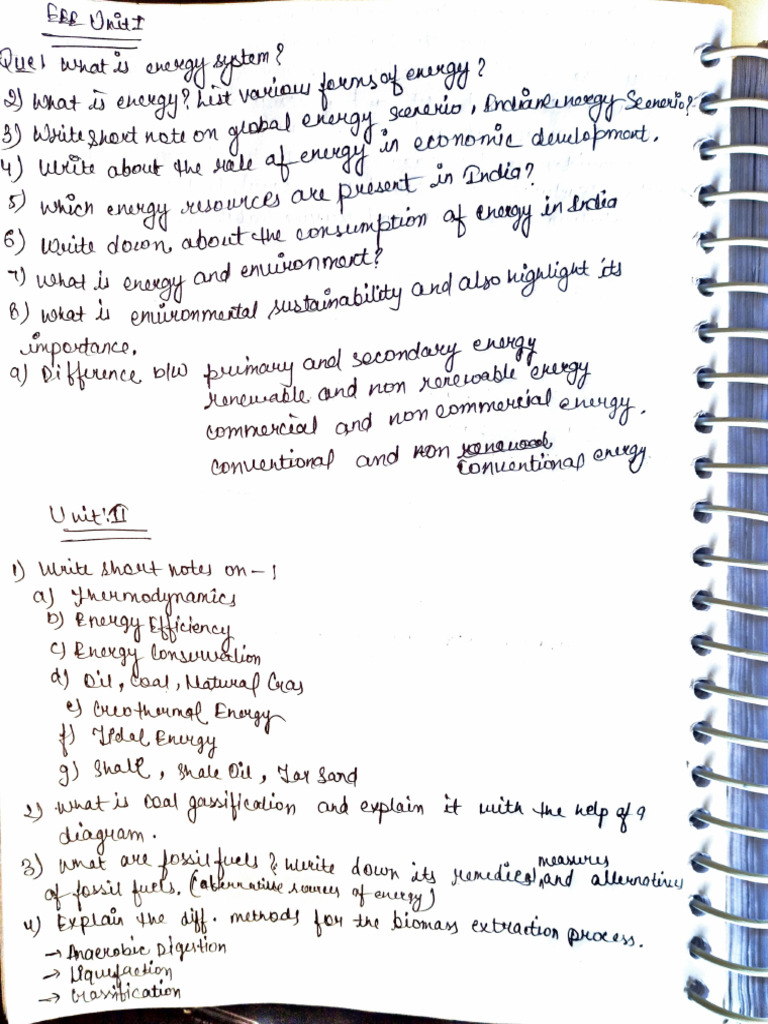 ERE Unit I
Ques 1 What is energy system?
2) What is energy? List various forms of energy?
3) Write short note on global energy scenerio, Indian energy Scenerio?
4) Write about the role of energy in economic development.
5) Which energy resources are present in India?
6) Write down about the consumption of energy in India
7) What is energy and environment?
8) What is environmental sustainability and also highlight its
importance.
9) Difference b/w primary and secondary energy
renewable and non renewable energy
commercial and non commercial energy.
conventional and non
conventional energy.
Unit: II
1) Write short notes on - !
a) Thermodynamics
b) Energy Efficiency
c) Energy Conservation
d) Oil, Coal, Natural Gas
e) Geothermal Energy
f) Tidal Energy
g) Shale, Shale Oil, Tar Sand
2) What is coal gassification and explain it with the help of a
diagram.
3) What are fossil fuels? Write down its remedical measures and alternatives
of fossil fuels. (alternative sources of energy)
4) Explain the diff. methods for the biomass extraction process.
→ Anaerobic Digestion
→ Liquefaction
→ Gassification